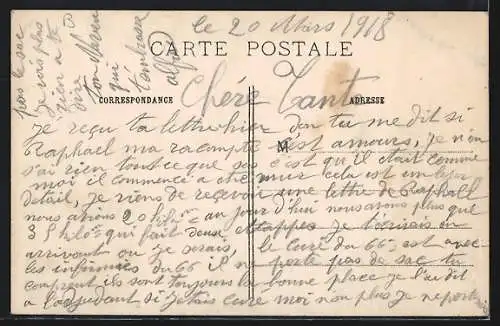 le 20 Mars 1918
CARTE POSTALE
CORRESPONDANCE
ADRESSE
Chère Tante
Je reçu ta lettre hier don tu me dit si
Raphael ma raconpté M est amours, je n'en
s'ai rien tout ce que sai c'est qu'il était comme
moi il commence a être mur cela est un léger
détail, je viens de recevoir une lettre de Raphaël
nous avions 20 kilos au jour d'hui nous avons plus que
35 kilos qui fait deux étappes je t'écrirais en
arrivant ou je serais, le curé du 66e est avec
les infirmiers du 66 il ne porte pas de sac tu
comprent ils sont toujours la bonne place je l'ai dit
a l'adjudant, si j'etais curé moi non plus je ne porterais
pas le sac
Je vois plus
rien a te
dire
ton Neveu
qui
t'embrasse
alfred